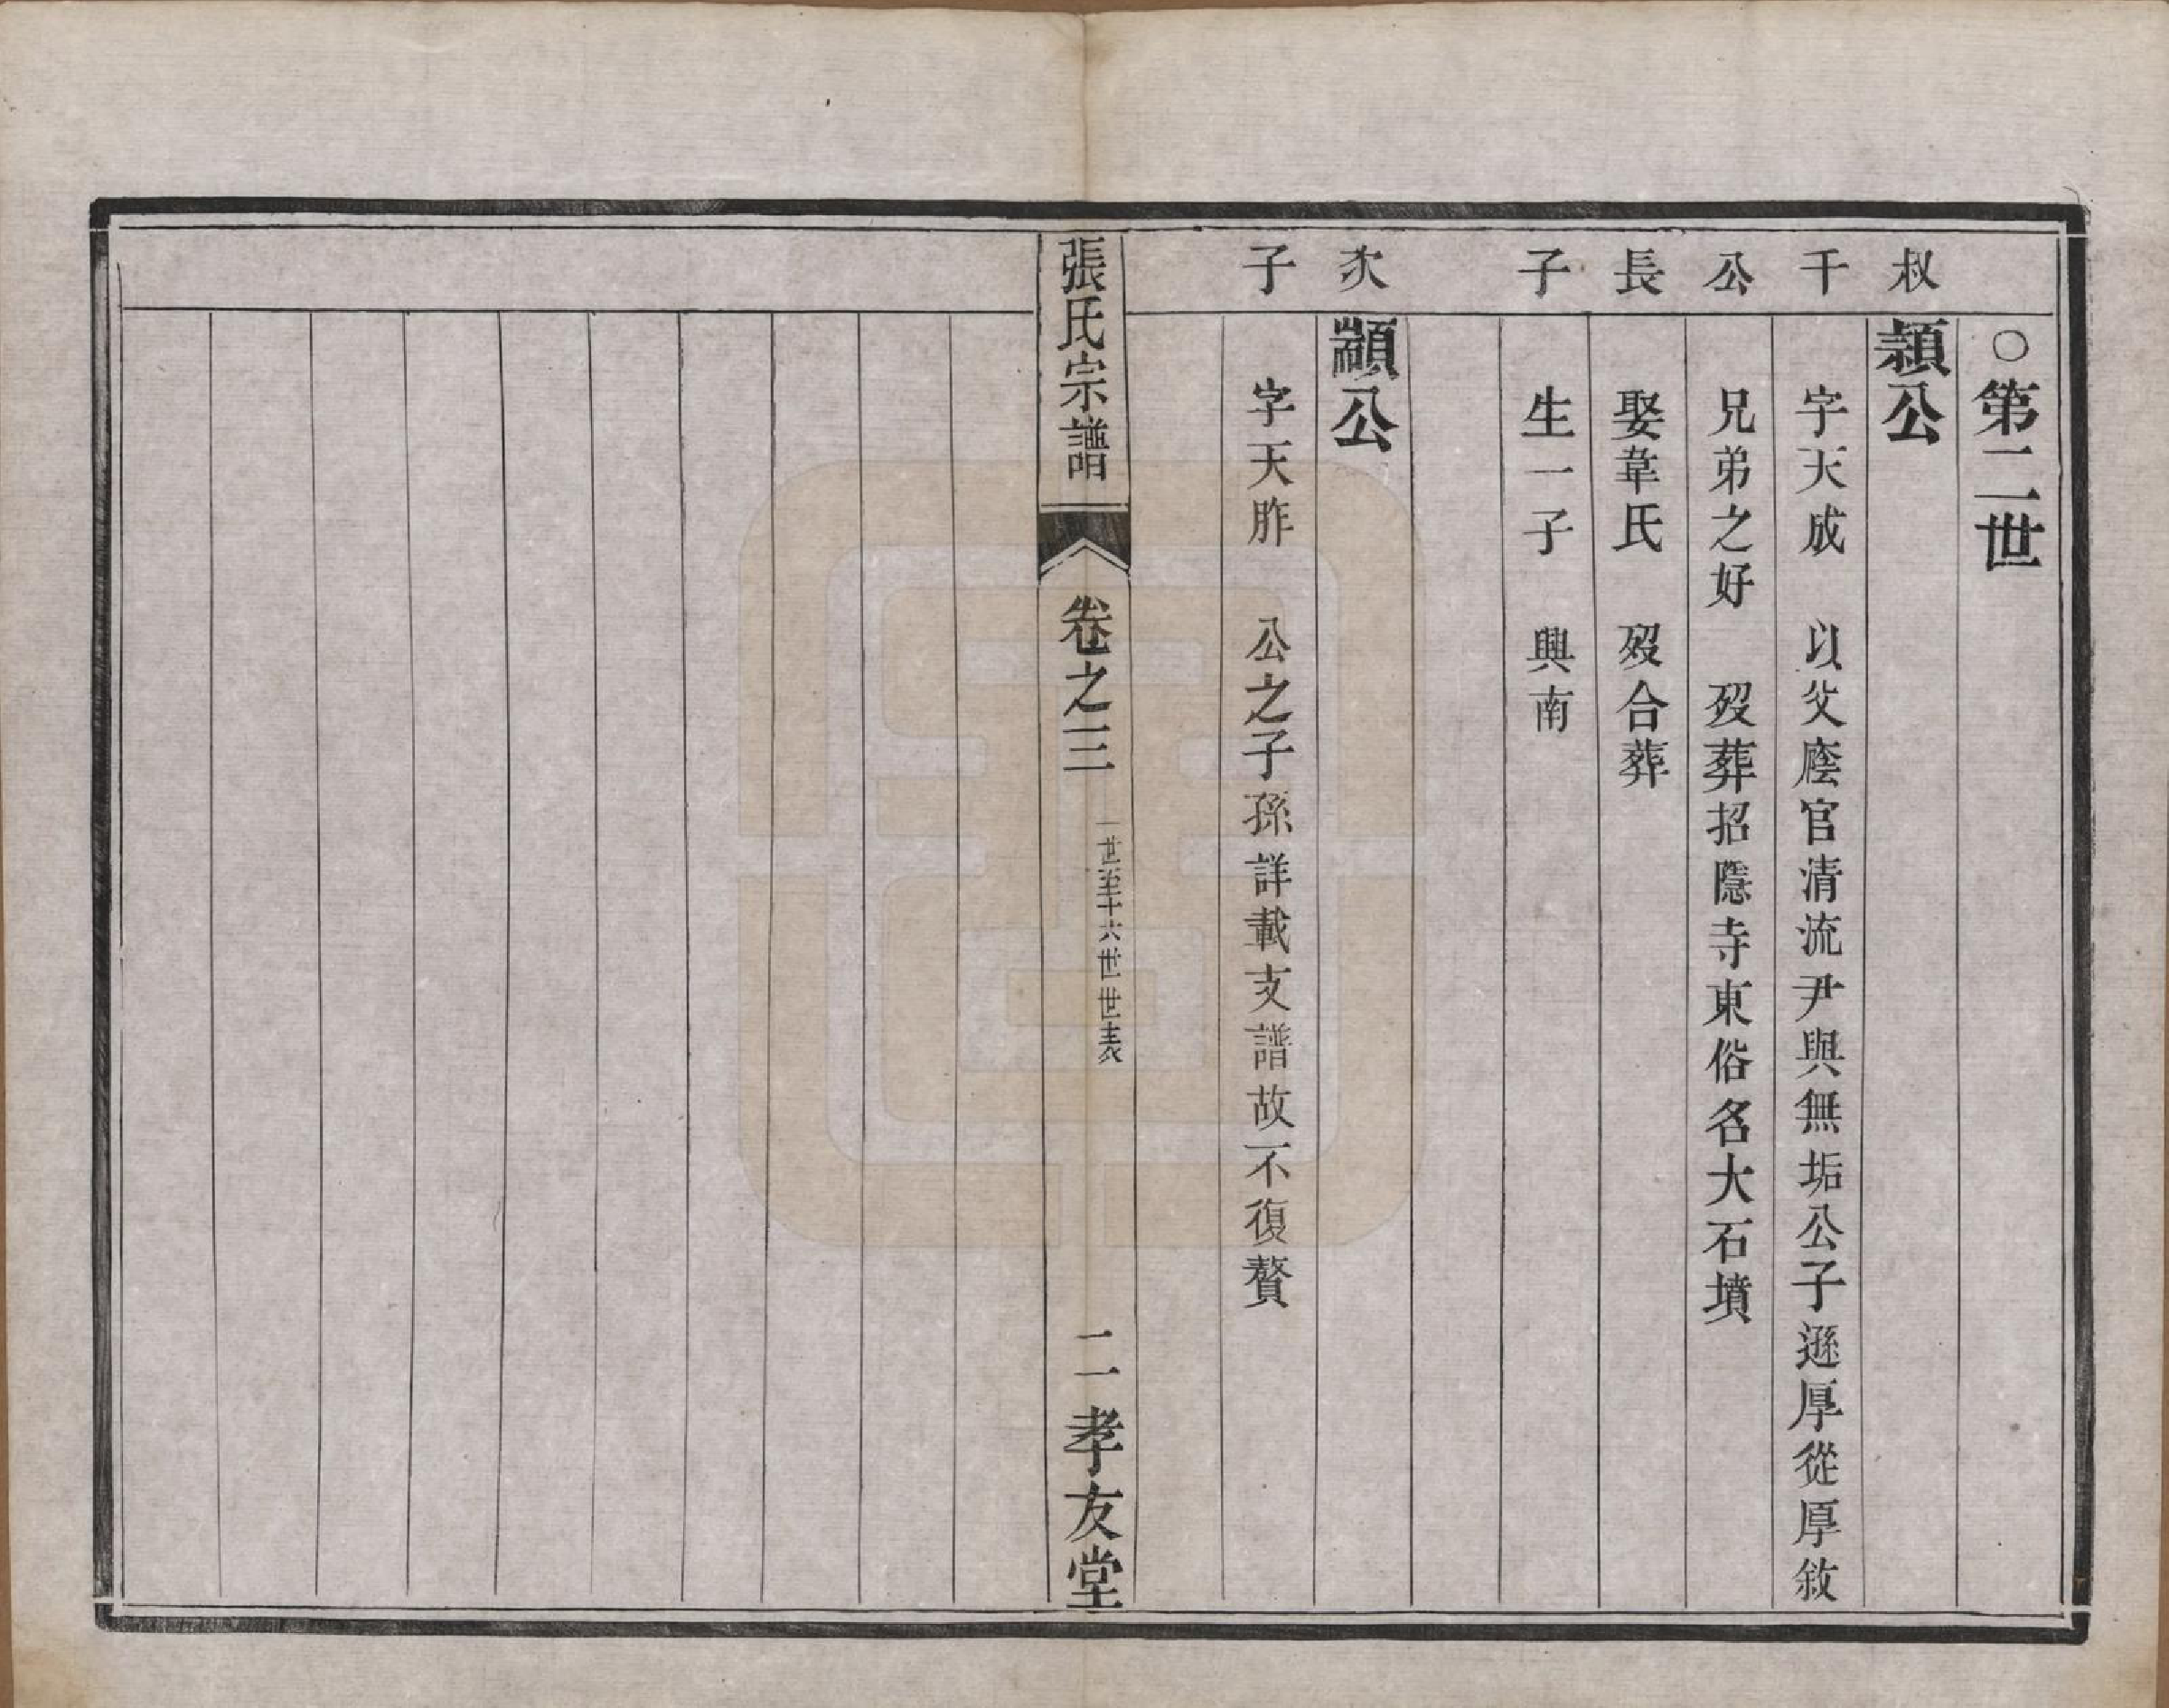 ○第二世
叔千公長子
頴公
字天成　以父廕官清流尹與無垢公子遜厚從厚敘
兄弟之好　歿葬招隱寺東俗名大石墳
娶韋氏　歿合葬
生一子　興南
次子
顓公
字天胙　公之子孫詳載支譜故不復贅
張氏宗譜
卷之三
一世至十六世世表
二
孝友堂